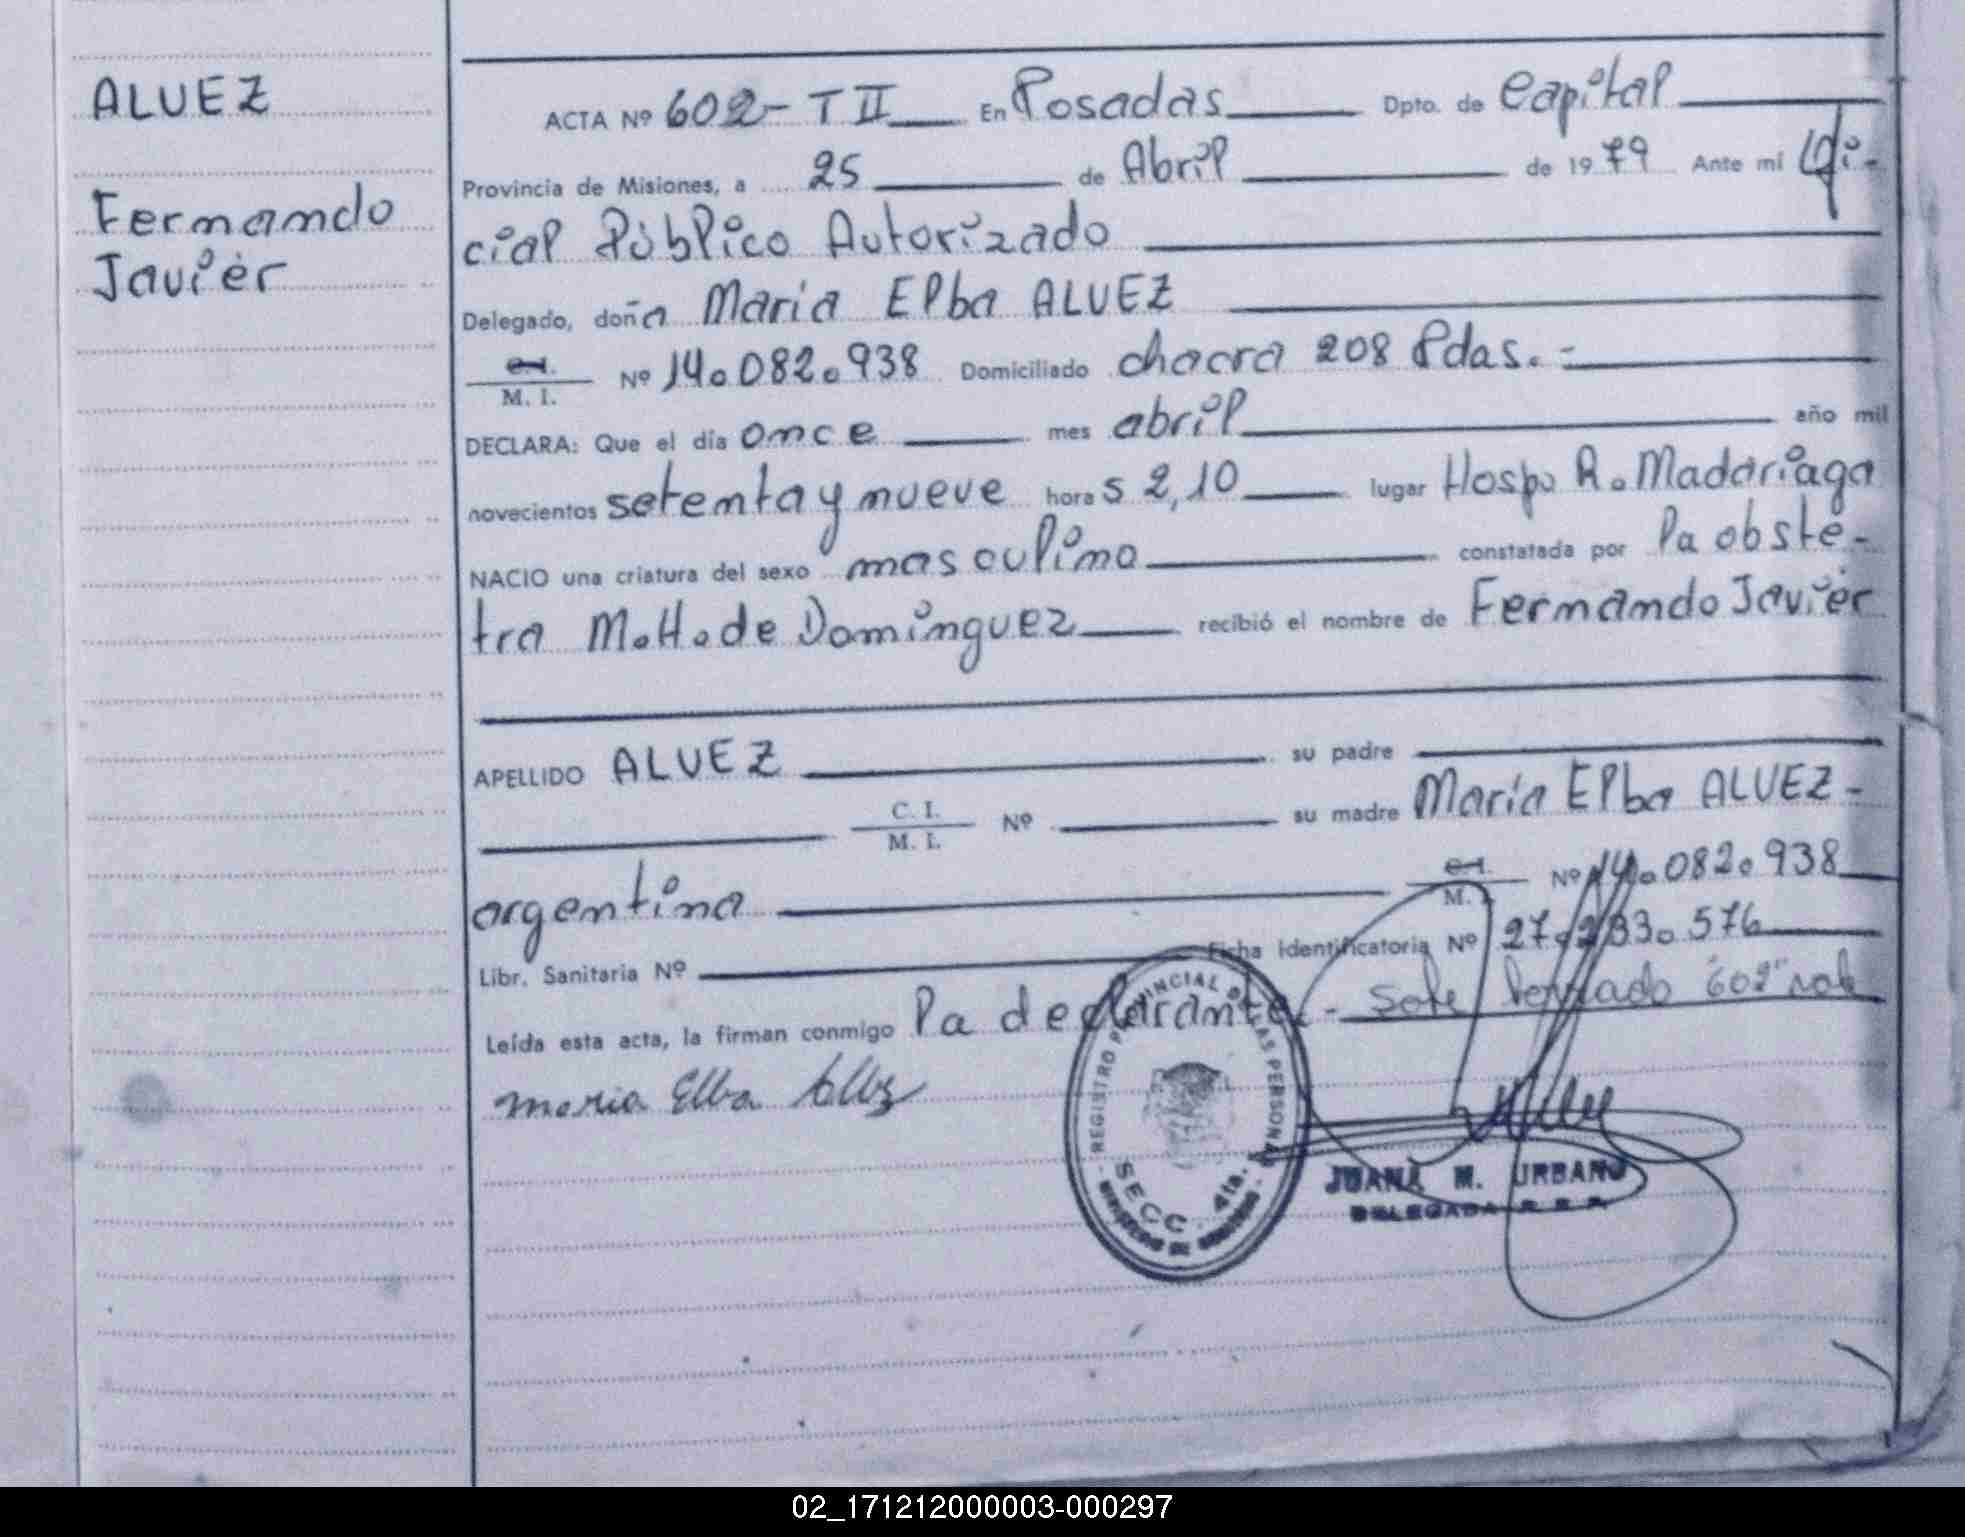 ALUEZ
Fernando
Javier
ACTA Nº 602 - T II En Posadas Dpto. de Capital
Provincia de Misiones, a 25 de Abril de 1979 Ante mi Ofi-
cial Público Autorizado
Delegado, doña Maria Elba ALUEZ
C.I.
M. I. Nº 14.082.938 Domiciliado chacra 208 Pdas. -
DECLARA: Que el día once mes abril año mil
novecientos setenta y nueve horas 2,10 lugar Hosp. R. Madariaga
NACIO una criatura del sexo masculino constatada por la obste-
tra M.H. de Dominguez recibió el nombre de Fernando Javier
APELLIDO ALUEZ su padre
C. I.
M. I. Nº su madre Maria Elba ALUEZ -
argentina C.I.
M. I. Nº 14.082.938
Libr. Sanitaria Nº Ficha Identificatoria Nº 27.233.576
Leída esta acta, la firman conmigo la declarante. - Sobre borrado "602" vale
Maria Elba
REGISTRO PROVINCIAL DE LAS PERSONAS
SECC. 4ta.
MINISTERIO DE GOBIERNO
JUANA M. URBANO
DELEGADA R.P.P.
02_171212000003-000297